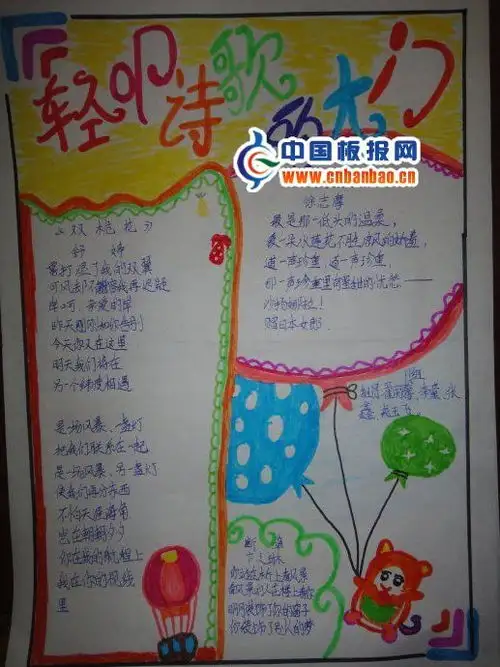 轻叩诗歌的大门
中国板报网
www.cnbanbao.cn
《双桅船》
舒婷
雾打湿了我的双翼
可风却不容我再迟疑
岸呵，亲爱的岸
昨天刚刚和你告别
今天你又在这里
明天我们将在
另一个纬度相遇
是一场风暴、一盏灯
把我们联系在一起
是一场风暴、另一盏灯
使我们再分东西
不怕天涯海角
岂在朝朝夕夕
你在我的航程上
我在你的视线
里
徐志摩
最是那一低头的温柔，
像一朵水莲花不胜凉风的娇羞，
道一声珍重，道一声珍重，
那一声珍重里有蜜甜的忧愁——
沙扬娜拉！
赠日本女郎
断章
卞之琳
你站在桥上看风景
看风景的人在楼上看你
明月装饰了你的窗子
你装饰了别人的梦